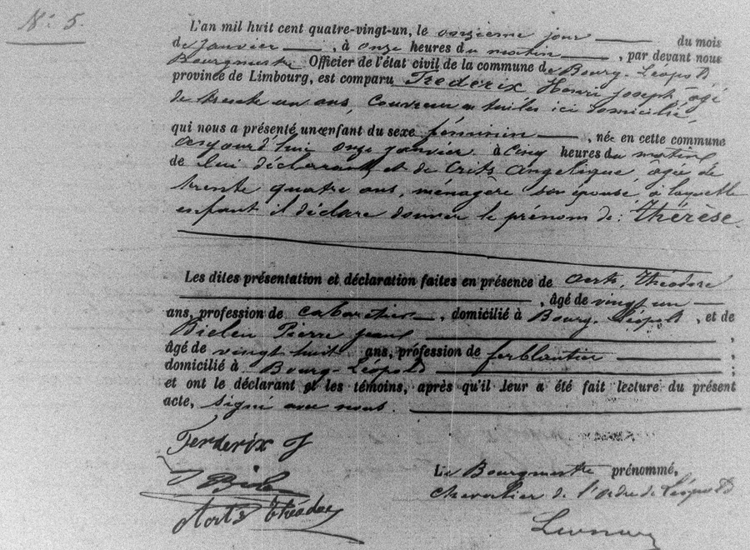 N: 5.
L'an mil huit cent quatre-vingt-un, le onzième jour du mois
de Janvier, à onze heures du matin, par devant nous
Bourgmestre Officier de l'état civil de la commune de Bourg-Léopold
province de Limbourg, est comparu Frederix Henri Joseph âgé
de trente un ans, couvreur à tuiles ici domicilié,
qui nous a présenté un enfant du sexe féminin, née en cette commune
aujourd'hui onze janvier à cinq heures du matin
de lui déclarant et de Crits Angélique, âgée de
trente quatre ans, ménagère son épouse à laquelle
enfant il déclare donner le prénom de: Thérèse.
Les dites présentation et déclaration faites en présence de Aerts, Théodore
, âgé de vingt un
ans, profession de cabaretier, domicilié à Bourg-Léopold, et de
Bielen Pierre Jean
âgé de vingt huit ans, profession de ferblantier
domicilié à Bourg-Léopold
et ont le déclarant et les témoins, après qu'il leur a été fait lecture du présent
acte, signé avec nous.
Ferderix J
Aerts Théodore
Le Bourgmestre prénommé,
chevalier de l'Ordre de Léopold